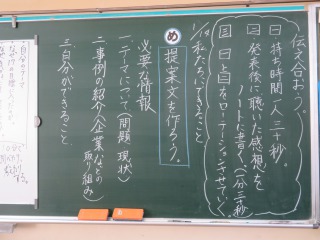 伝え合おう。
一 持ち時間一人三十秒。
二 発表後に聴いた感想を
ノートに書く。(一分三十秒)
三 一と二をローテーションさせていく。
1/19 私たちにできること
め 提案文を作ろう。
必要な情報
一.テーマについて(問題 現状)
二.事例の紹介(企業などの取り組み)
三.自分ができること
自分のテーマ